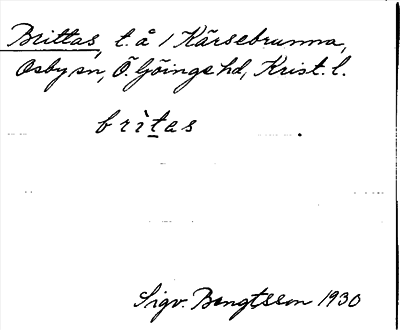 Brittas, t. å 1 Kärsebrunna,
Osby sn, Ö. Göinge hd, Krist. l.
brìtas
Sigv. Bengtsson 1930